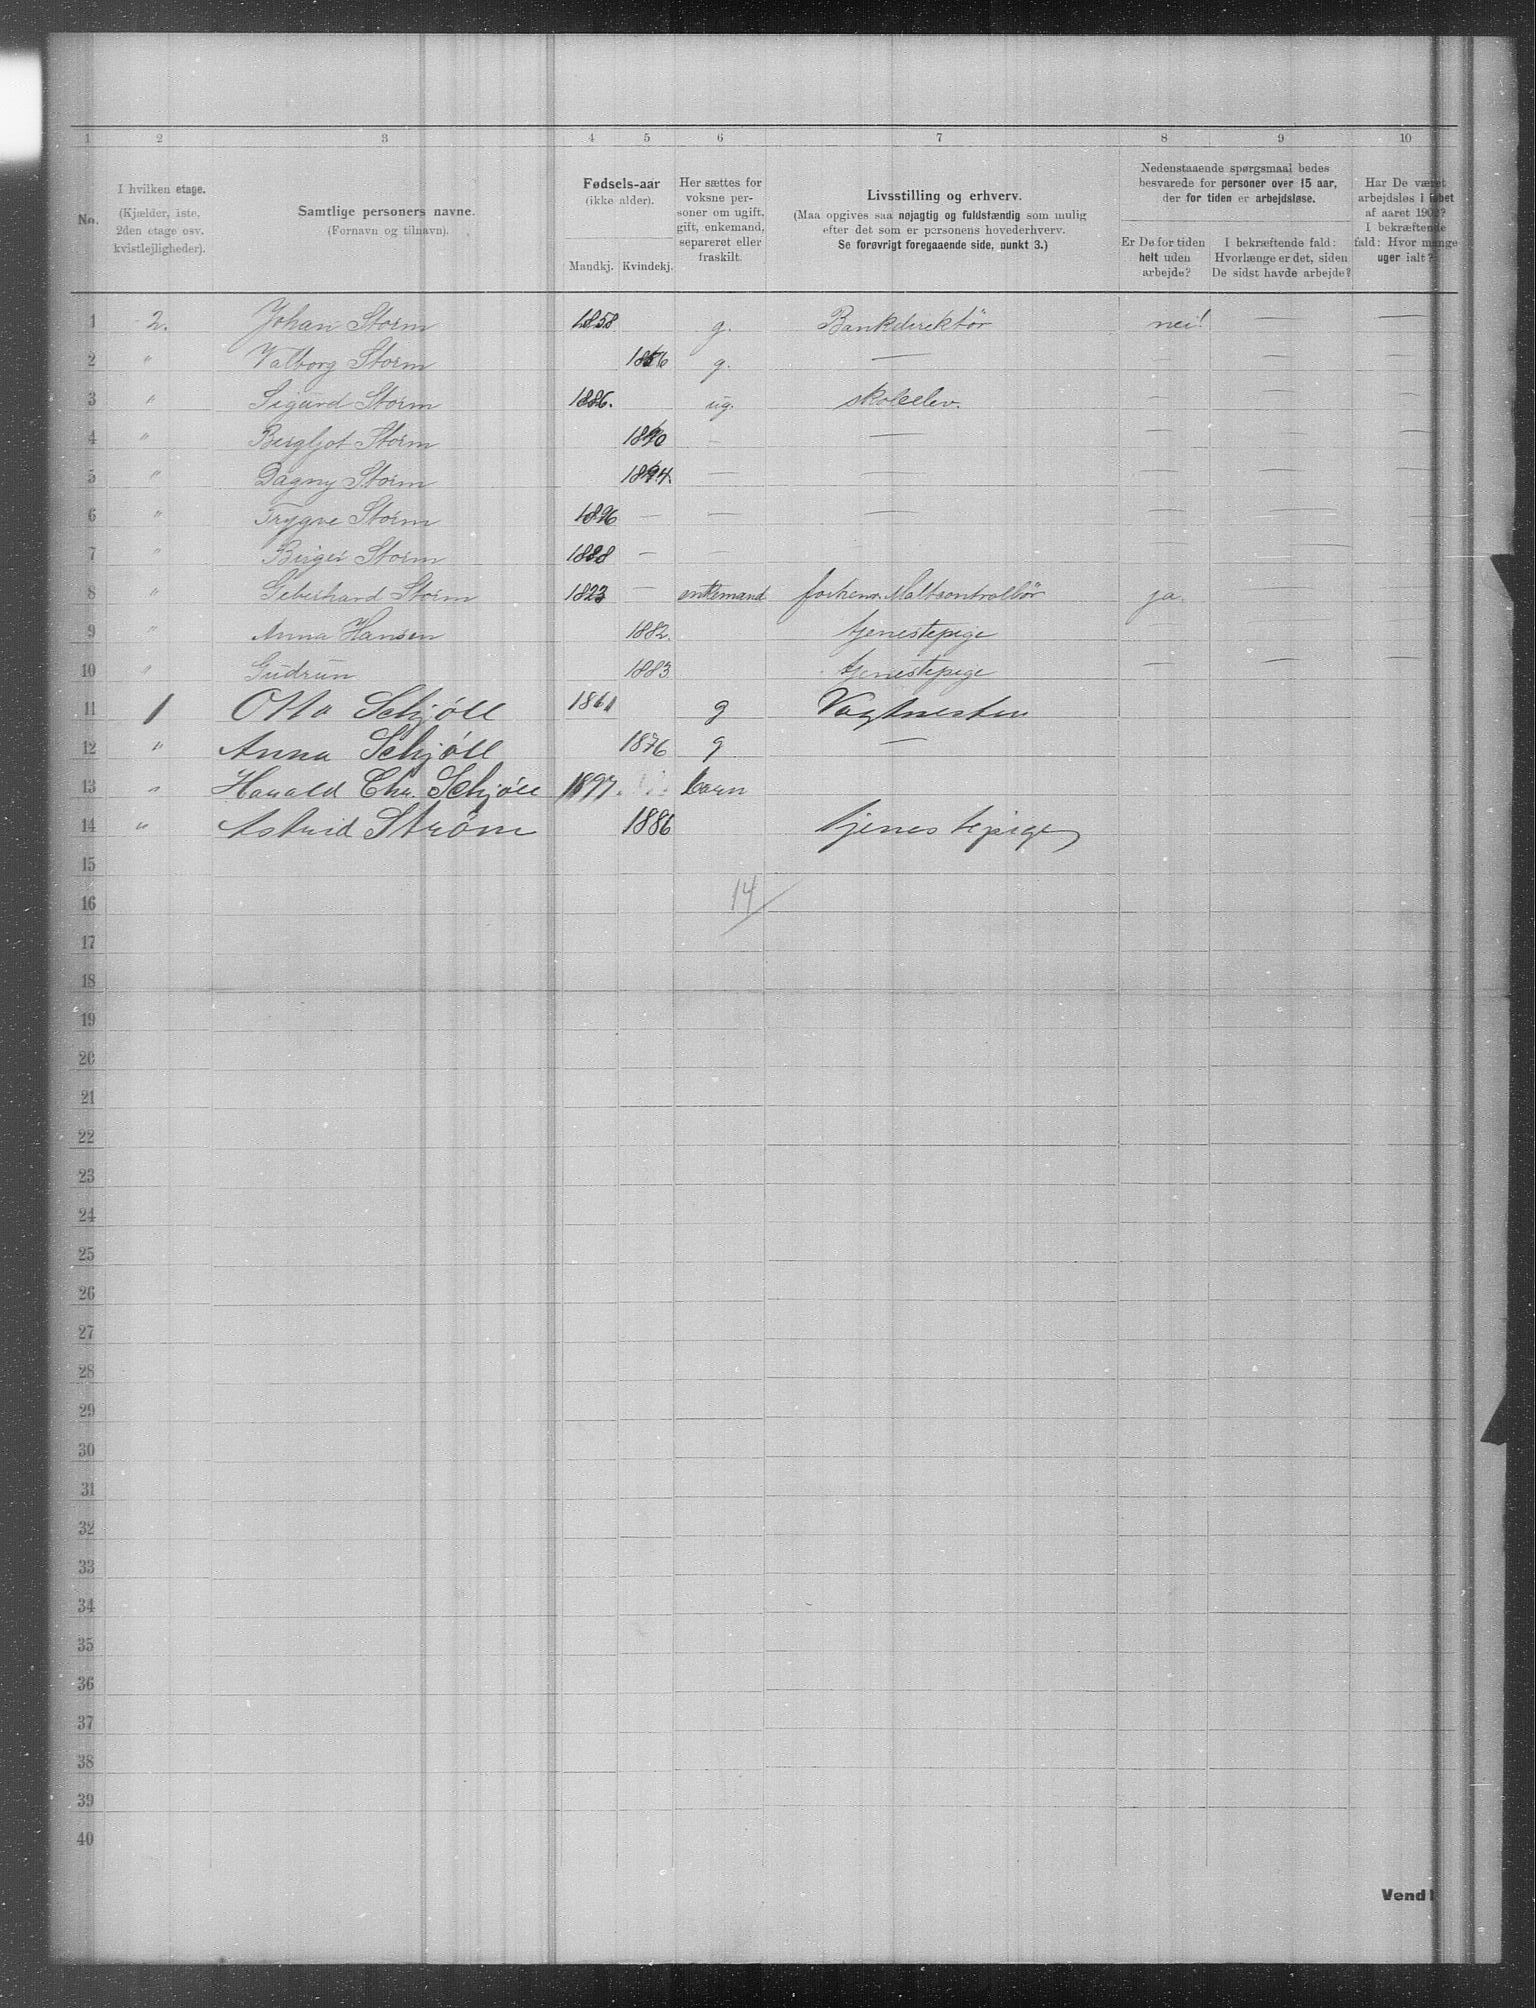 1 2 3 4 5 6 7 8 9 10
No.
I hvilken etage.
(Kjælder, 1ste,
2den etage osv.
kvistlejligheder).
Samtlige personers navne.
(Fornavn og tilnavn).
Fødsels-aar
(ikke alder).
Mandkj. Kvindekj.
Her sættes for
voksne per-
soner om ugift,
gift, enkemand,
separeret eller
fraskilt.
Livsstilling og erhverv.
(Maa opgives saa nøjagtig og fuldstændig som mulig
efter det som er personens hovederhverv.
Se forøvrigt foregaaende side, punkt 3.)
Nedenstaaende spørgsmaal bedes
besvarede for personer over 15 aar,
der for tiden er arbejdsløse.
Er De for tiden
helt uden
arbejde?
I bekræftende fald:
Hvorlænge er det, siden
De sidst havde arbejde?
Har De været
arbejdsløs i løbet
af aaret 1902?
I bekræftende
fald: Hvor mange
uger ialt?
1 2. Johan Storm 1858 g. Bankdirektör nei! — —
2 " Valborg Storm g. — — — —
3 " Sigurd Storm 1886. ug. skoleelev. — — —
4 " Bergljot Storm — — — — —
5 " Dagny Storm — — — — —
6 " Trygve Storm 1896 — — — — — —
7 " Birger Storm — — — — — —
8 " Storm 1823 — enkemand ja. — —
9 " Anna Hansen 1882. tjenestepige — — —
10 " Gudrun 1883 tjenestepige — — —
11 1 Otto Schjöll 1861 g
12 " Anna Schjöll 1876 g —
13 " Harald Chr. Schjöll 1897. barn
14 " Astrid Ström 1886 tjenestepige
15
16 14
17
18
19
20
21
22
23
24
25
26
27
28
29
30
31
32
33
34
35
36
37
38
39
40
Vend!